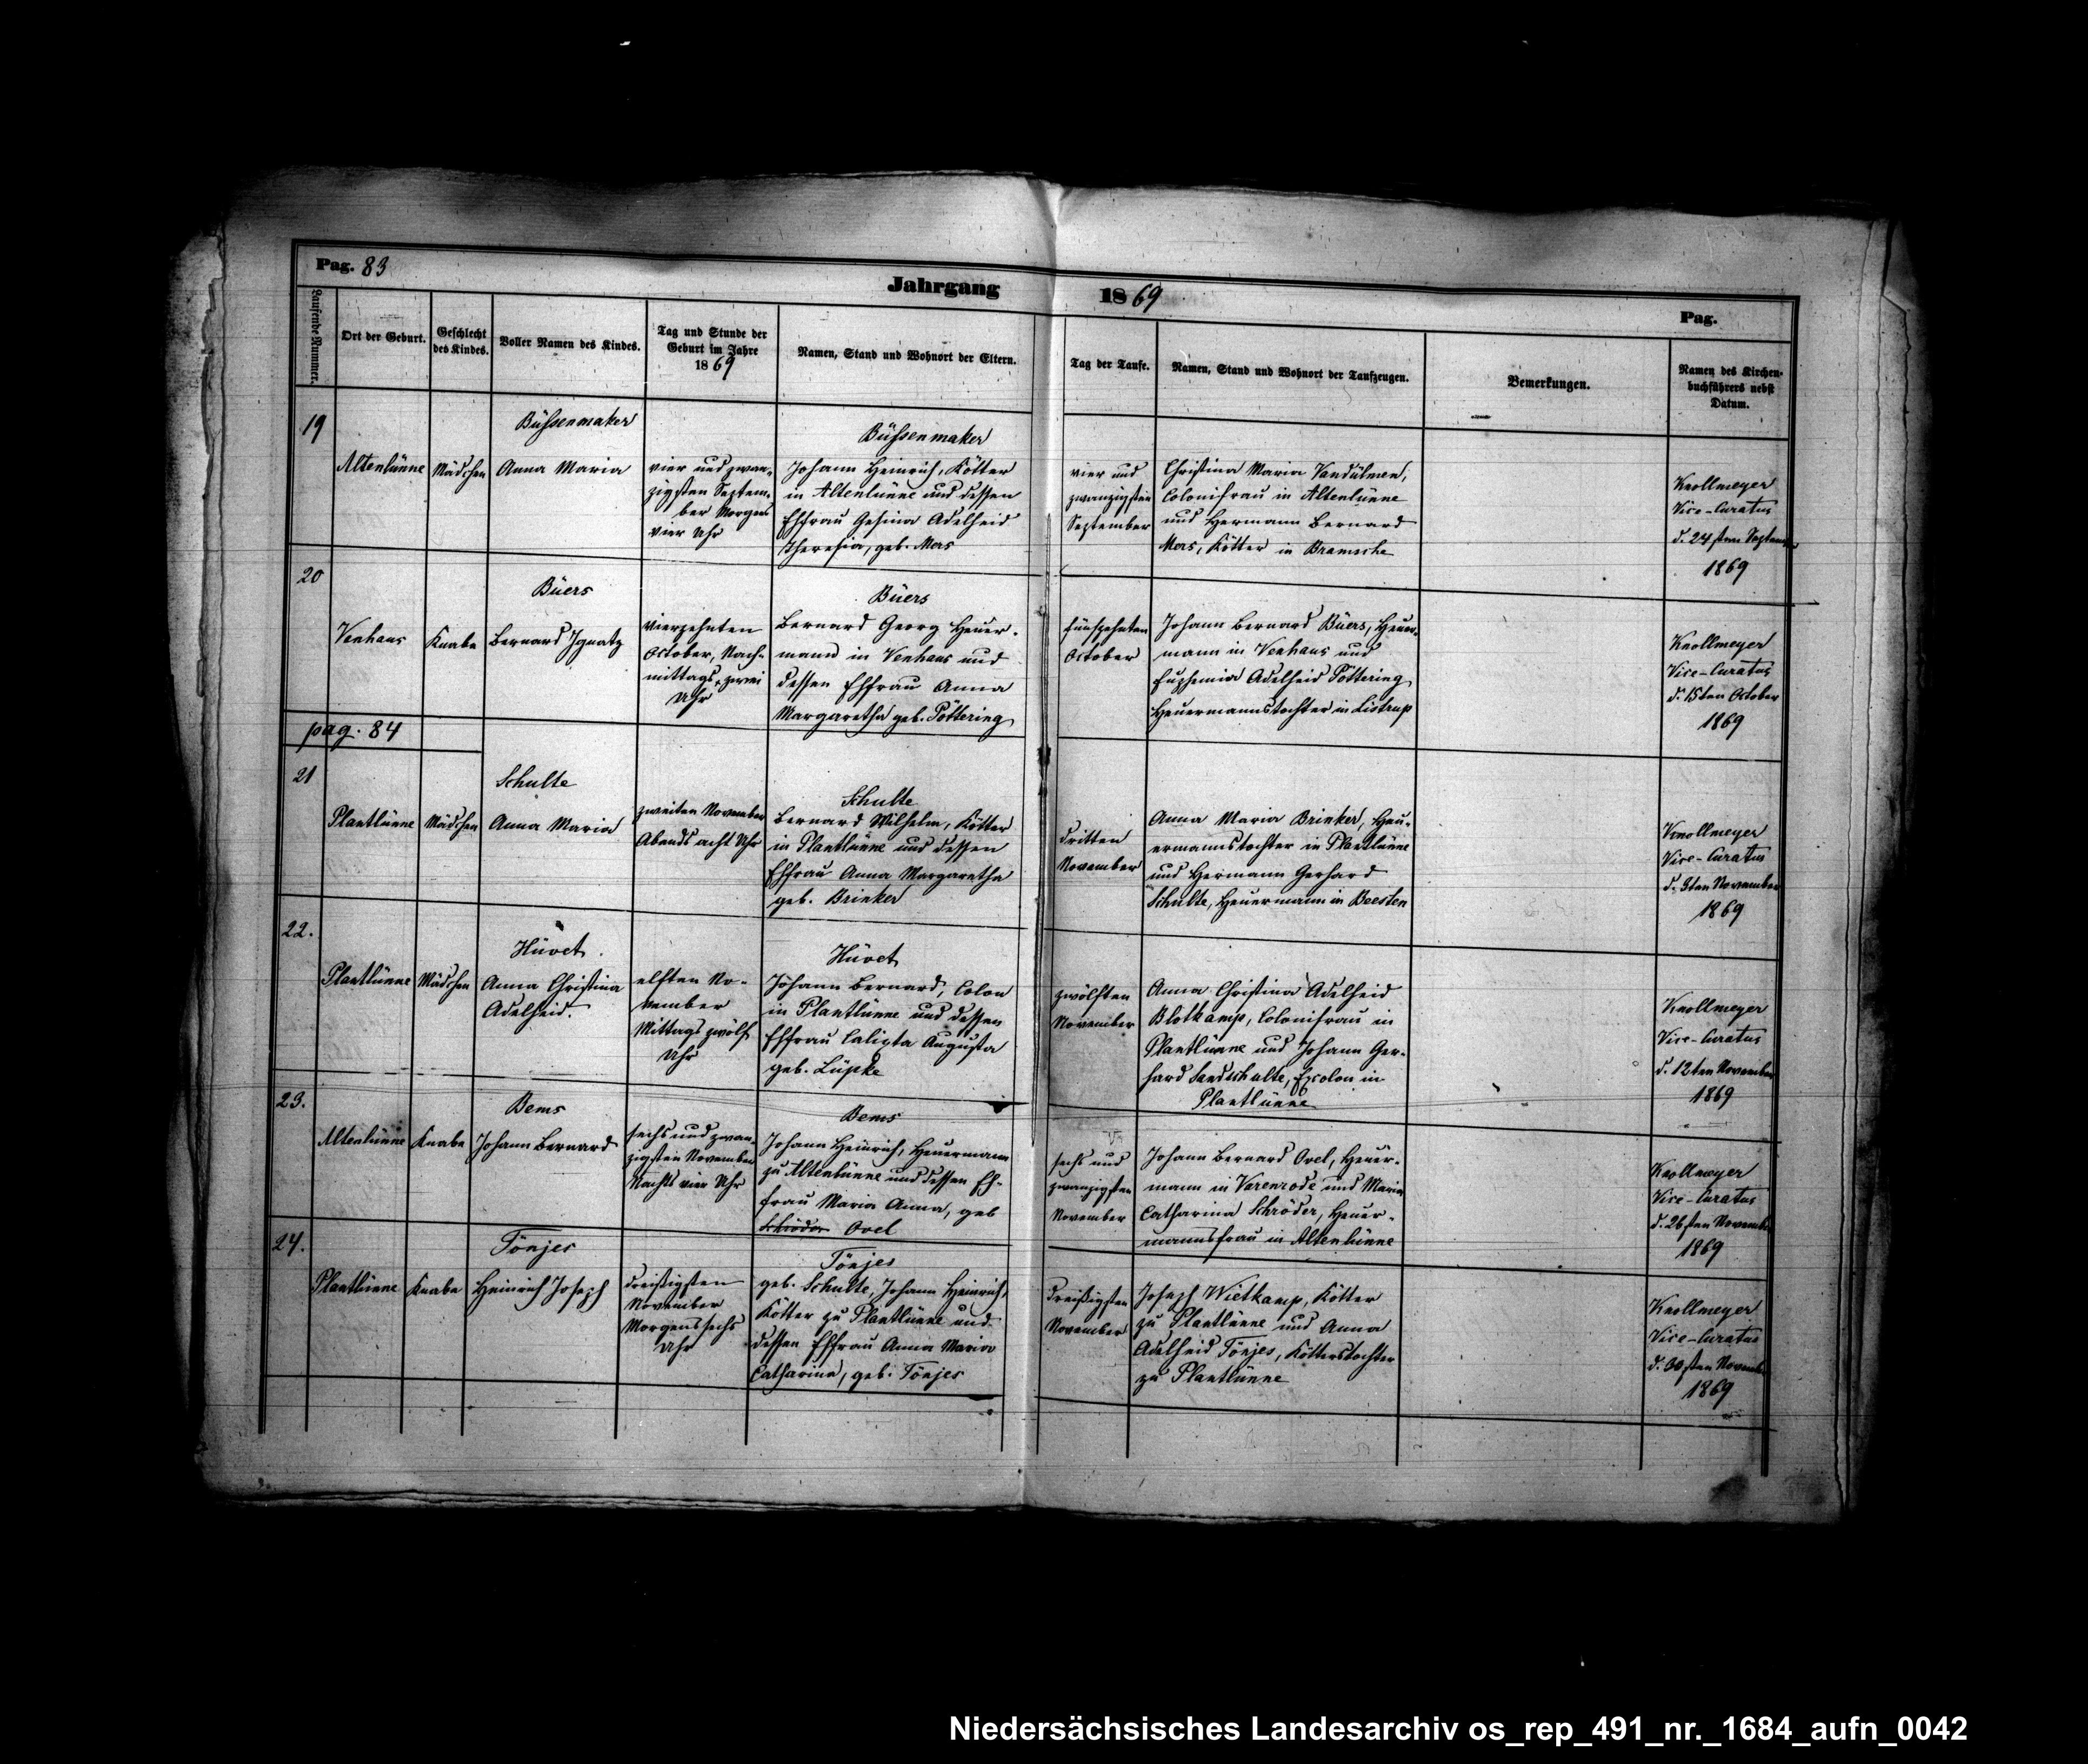 Pag. 83
Jahrgang 1869
Pag.
Laufende Nummer.
Ort der Geburt.
Geschlecht
des Kindes.
Voller Namen des Kindes.
Tag und Stunde der
Geburt im Jahre
1869
Namen, Stand und Wohnort der Eltern.
Tag der Taufe.
Namen, Stand und Wohnort der Taufzeugen.
Bemerkungen.
Namen des Kirchen-
buchführers nebst
Datum.
19
Altenlünne
Mädchen
Büssenmaker
Anna Maria
vier und zwan-
zigsten Septem-
ber Morgens
vier Uhr
Büssenmaker
Johann Heinrich, Kötter
in Altenlünne und dessen
Ehfrau Gesina Adelheid
Theresia, geb. Mers
vier und
zwanzigsten
September
Christina Maria Vandülmen,
Colonifrau in Altenlünne
und Hermann Bernard
Mers, Kötter in Bramsche
Knollmeyer
Vice-Curatus
d. 24sten Septem
1869
20
Venhaus
Knabe
Büers
Bernard Ignatz
vierzehnten
October, Nach-
mittags zwei
Uhr
Büers
Bernard Georg Heuer-
mann in Venhaus und
dessen Ehfrau Anna
Margaretha geb. Pöttering
fünfzehnten
October
Johann Bernard Büers, Heuer-
mann in Venhaus und
Euphemia Adelheid Pöttering
Heuermannstochter in Listrup
Knollmeyer
Vice-Curatus
d. 15ten October
1869
pag. 84
21
Plantlünne
Mädchen
Schulte
Anna Maria
zweiten November
Abends acht Uhr
Schulte
Bernard Wilhelm, Kötter
in Plantlünne und dessen
Ehfrau Anna Margaretha
geb. Brinker
dritten
November
Anna Maria Brinker, Heu-
ermannstochter in Plantlünne
und Hermann Gerhard
Schulte, Heuermann in Beesten
Knollmeyer
Vice-Curatus
d. 3ten November
1869
22.
Plantlünne
Mädchen
Hüvet.
Anna Christina
Adelheid.
elften No-
vember
Mittags zwölf
Uhr
Hüvet
Johann Bernard, Colon
in Plantlünne und dessen
Ehfrau Calixta Augusta
geb. Lüpke
zwölften
November
Anna Christina Adelheid
Blotkamp, Colonifrau in
Plantlünne und Johann Ger-
hard Sandschulte, Excolon in
Plantlünne
Knollmeyer
Vice-Curatus
d. 12ten November
1869
23.
Altenlünne
Knabe
Bems
Johann Bernard
sechs und zwan-
zigsten November
Nachts vier Uhr
Bems
Johann Heinrich, Heuermann
zu Altenlünne und dessen Eh-
frau Maria Anna, geb
Schröder Ovel
sechs und
zwanzigsten
November
Johann Bernard Ovel, Heuer-
mann in Varenrode und Maria
Catharina Schröder, Heuer-
mannsfrau in Altenlünne
Knollmeyer
Vice-Curatus
d. 26sten Novemb
1869
24.
Plantlünne
Knabe
Tönjes
Heinrich Joseph
dreißigsten
November
Morgens sechs
Uhr
Tönjes
geb. Schulte, Johann Heinrich,
Kötter zu Plantlünne und
dessen Ehfrau Anna Maria
Catharina, geb. Tönjes
dreißigsten
November
Joseph Wietkamp, Kötter
zu Plantlünne und Anna
Adelheid Tönjes, Kötterstochter
zu Plantlünne
Knollmeyer
Vice-Curatus
d. 30sten Novemb
1869
Niedersächsisches Landesarchiv os_rep_491_nr._1684_aufn_0042